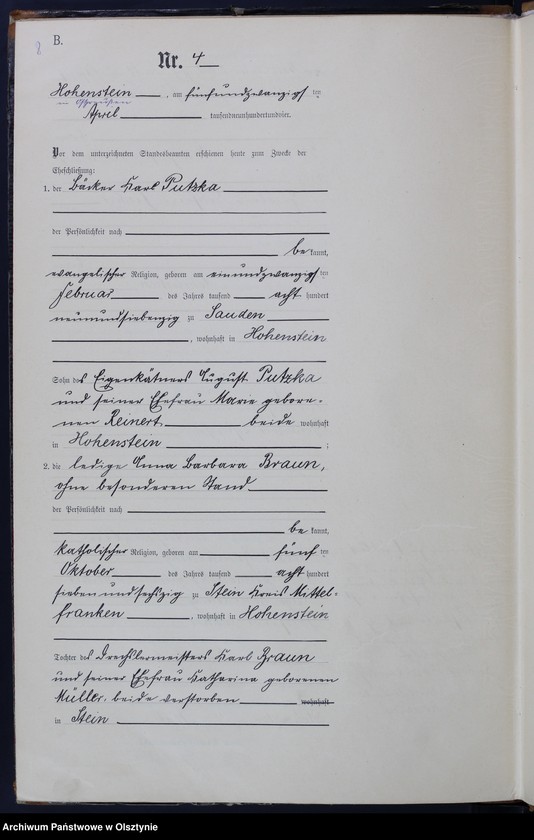 B.
Nr. 4
Hohenstein, am fünfundzwanzigsten
in Ostpreußen
April tausendneunhundertundvier.
Vor dem unterzeichneten Standesbeamten erschienen heute zum Zwecke der
Eheschließung:
1. der Bäcker Karl Putzka
der Persönlichkeit nach
bekannt,
evangelischer Religion, geboren am einundzwanzigsten
Februar des Jahres tausend acht hundert
neunundsiebenzig zu Sauden
, wohnhaft in Hohenstein
Sohn des Eigenkätners August Putzka
und seiner Ehefrau Marie gebore-
nen Reinert beide wohnhaft
in Hohenstein ;
2. die ledige Anna Barbara Braun,
ohne besonderen Stand
der Persönlichkeit nach
bekannt,
katholischer Religion, geboren am fünften
Oktober des Jahres tausend acht hundert
siebenundsechszig zu Stein Kreis Mittel-
franken, wohnhaft in Hohenstein
Tochter des Drechslermeisters Karl Braun
und seiner Ehefrau Katharina geborenen
Müller, beide verstorben wohnhaft
in Stein
Archiwum Państwowe w Olsztynie